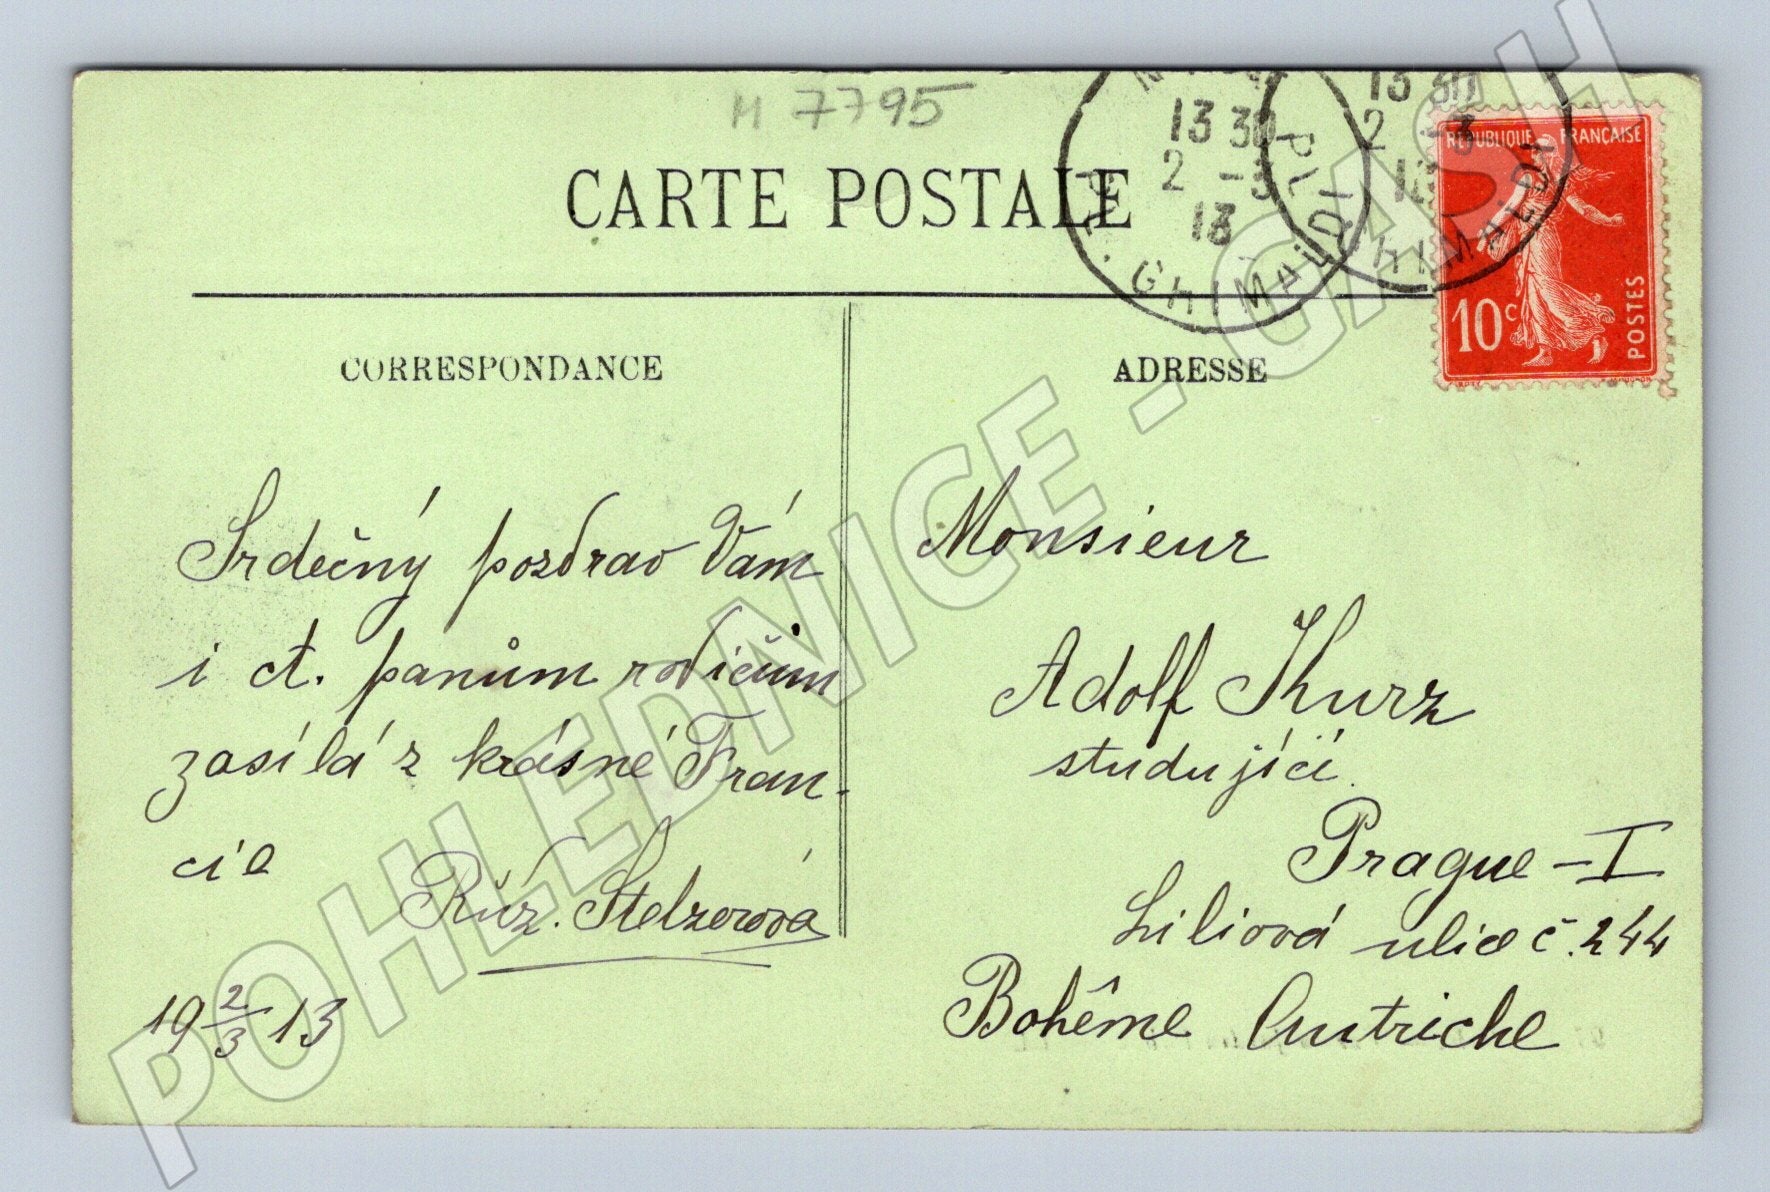 H 7795
CARTE POSTALE
13 30
2 -3
13
PL. GHIMALDI
13 30
2 -3
13
PL. GHIMALDI
REPUBLIQUE FRANÇAISE
10 c
POSTES
CORRESPONDANCE
ADRESSE
Srdečný pozdrav Vám
i ct. panům rodičům
zasílá z krásné Fran-
cie
Růž. Stelzerová
19 2/3 13
Monsieur
Adolf Kurz
studující
Prague - I
Liliová ulice č. 244
Bohême Autriche
POHLEDNICE - CASH